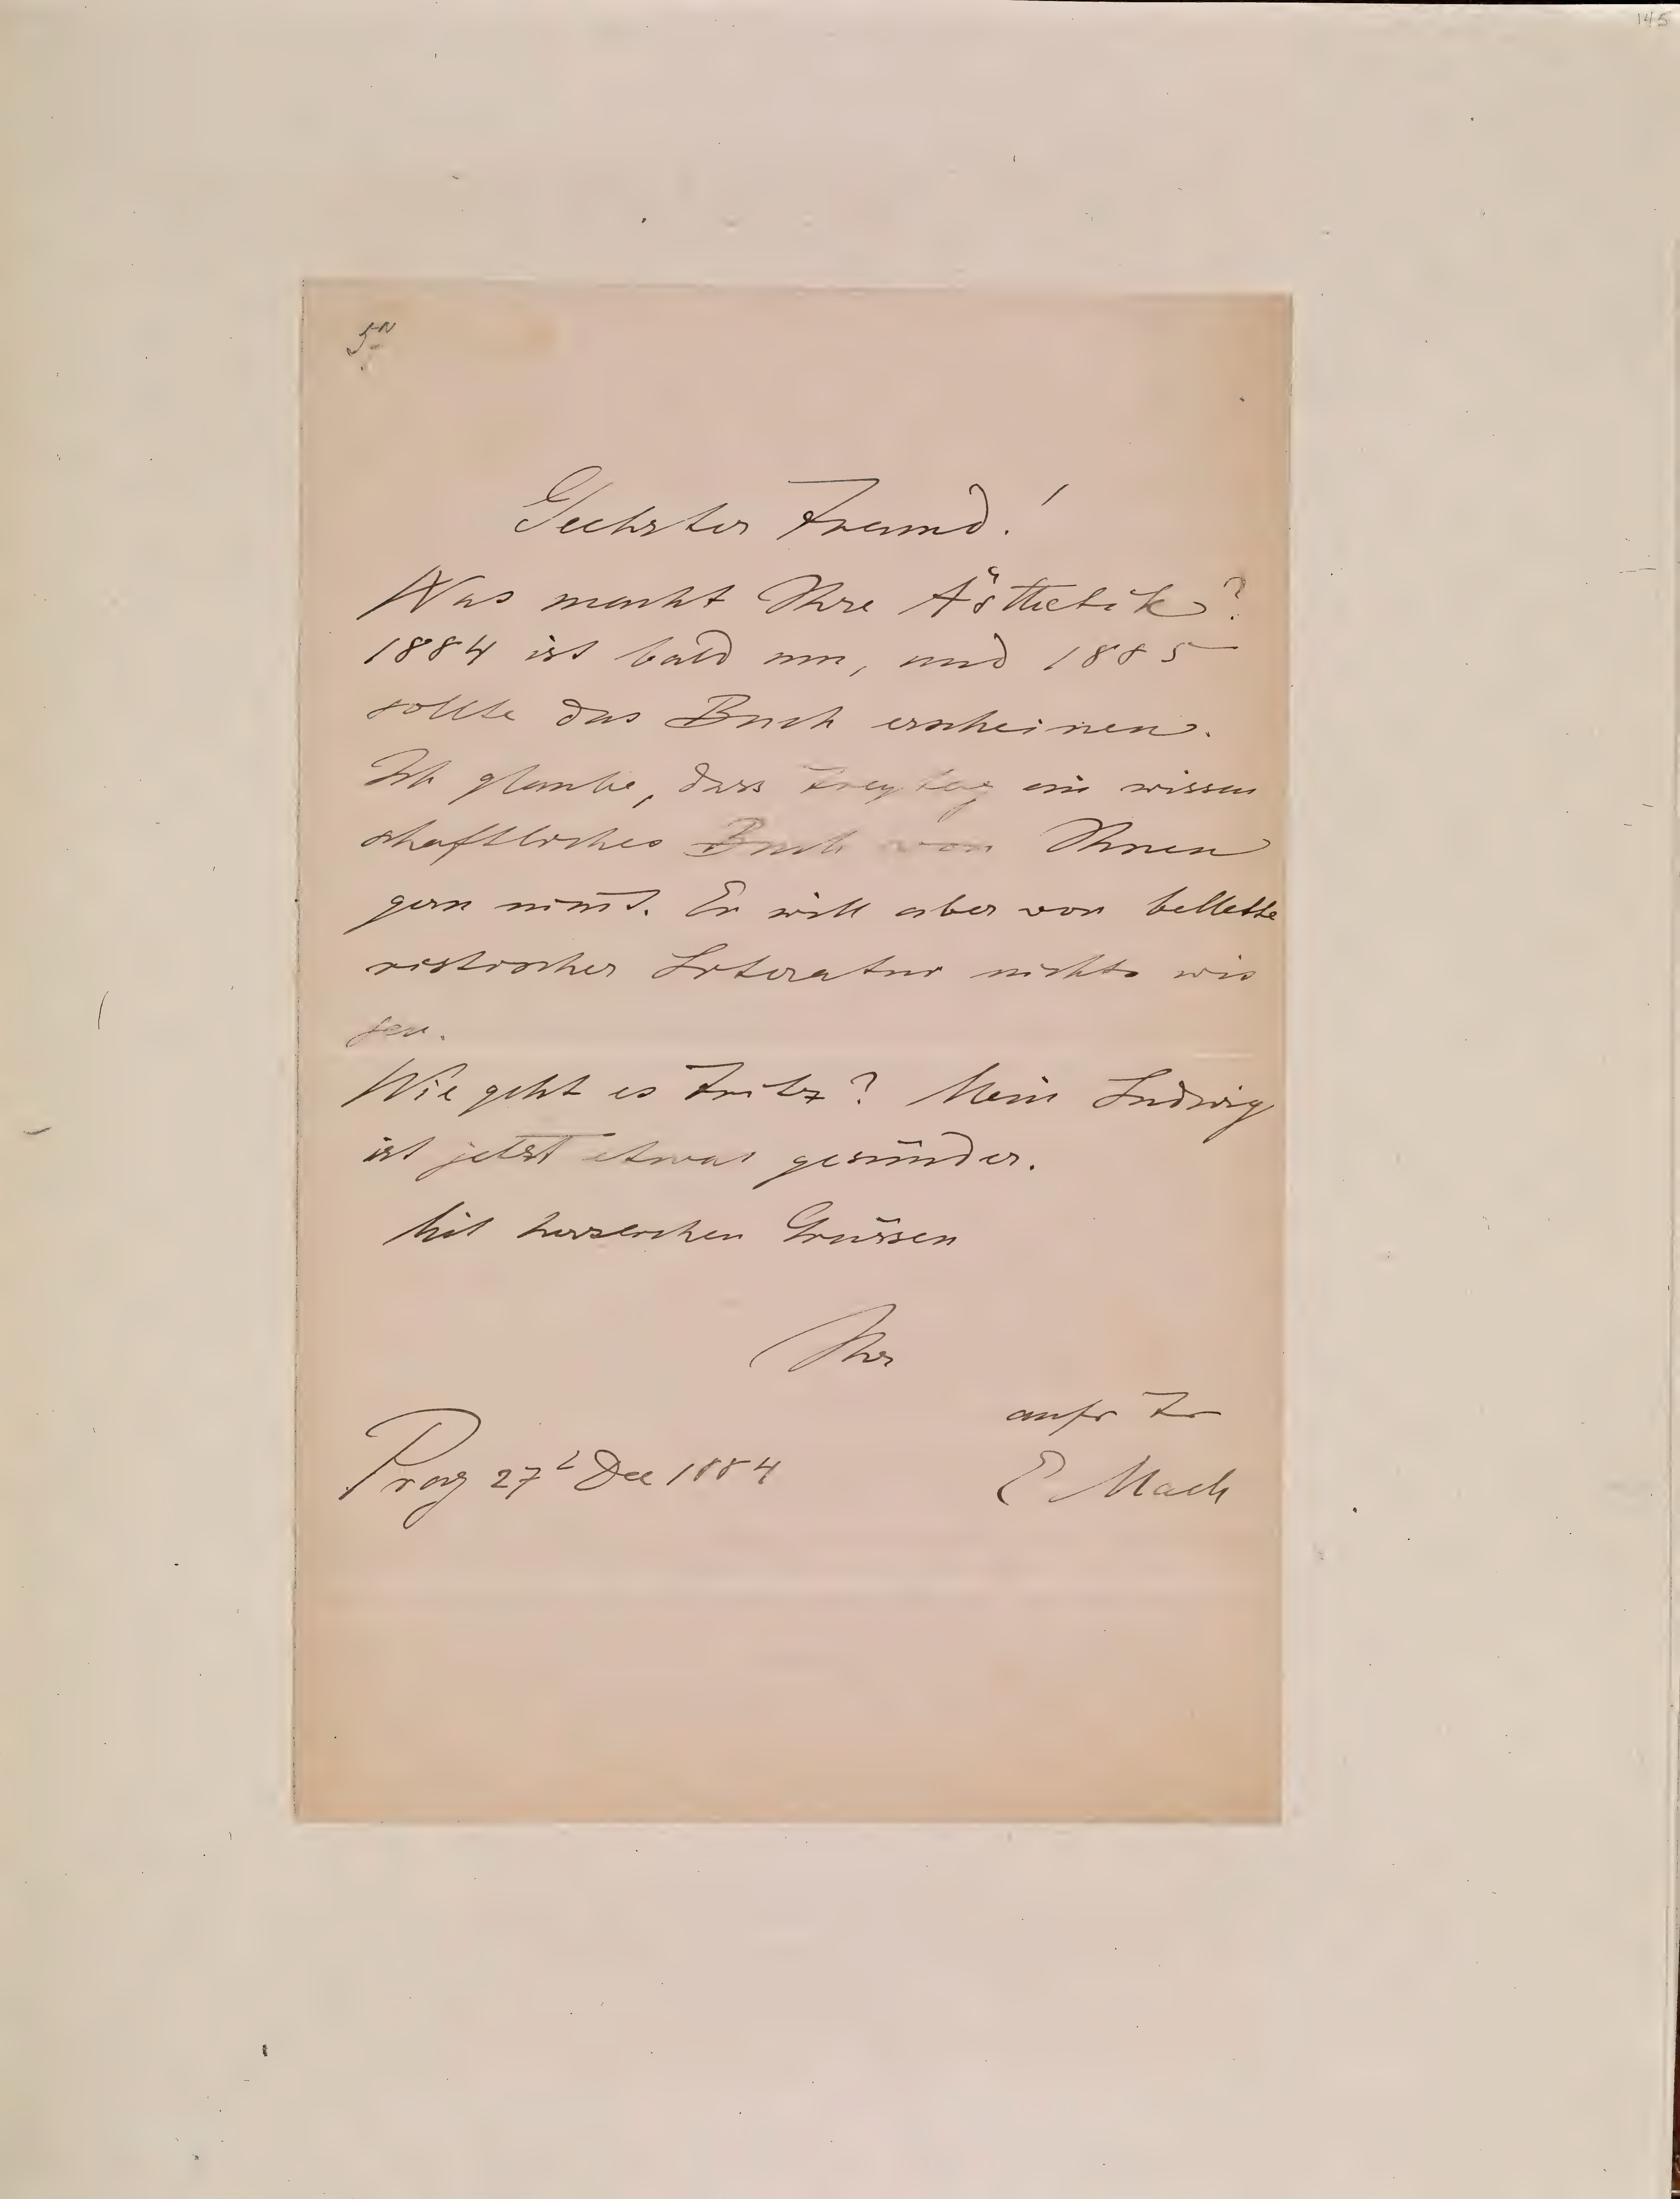 145
Geehrter Freund!
Was macht Ihre Ästhetik?
1884 ist bald um, und 1885
sollte das Buch erscheinen.
Ich glaube, dass Freytag ein wissen
schaftliches Buch von Ihnen
gern nim̄t. Er will aber von bellette
ristischer Literatur nichts wis
sen.
Wie geht es Fritz? Mein Ludwig
ist jetzt etwas gesünder.
Mit herzlichen Grüssen
Ihr
aufr Fr
Prag 27t Dec 1884
E Mach